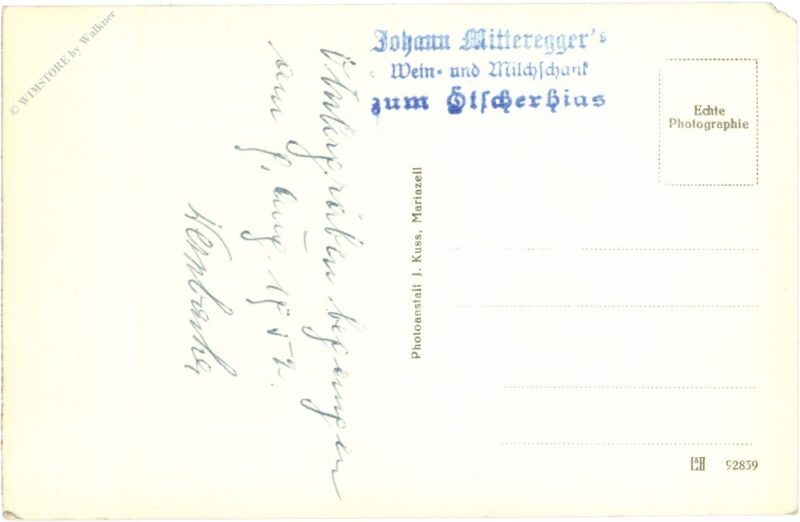 © WIMSTORE by Walkner
Johann Mitteregger's
Wein- und Milchschank
zum Ötscherhias
Echte
Photographie
Photoanstalt J. Kuss, Mariazell
Ötschergräben begangen
am 9. Aug. 1952.
L&H 92839